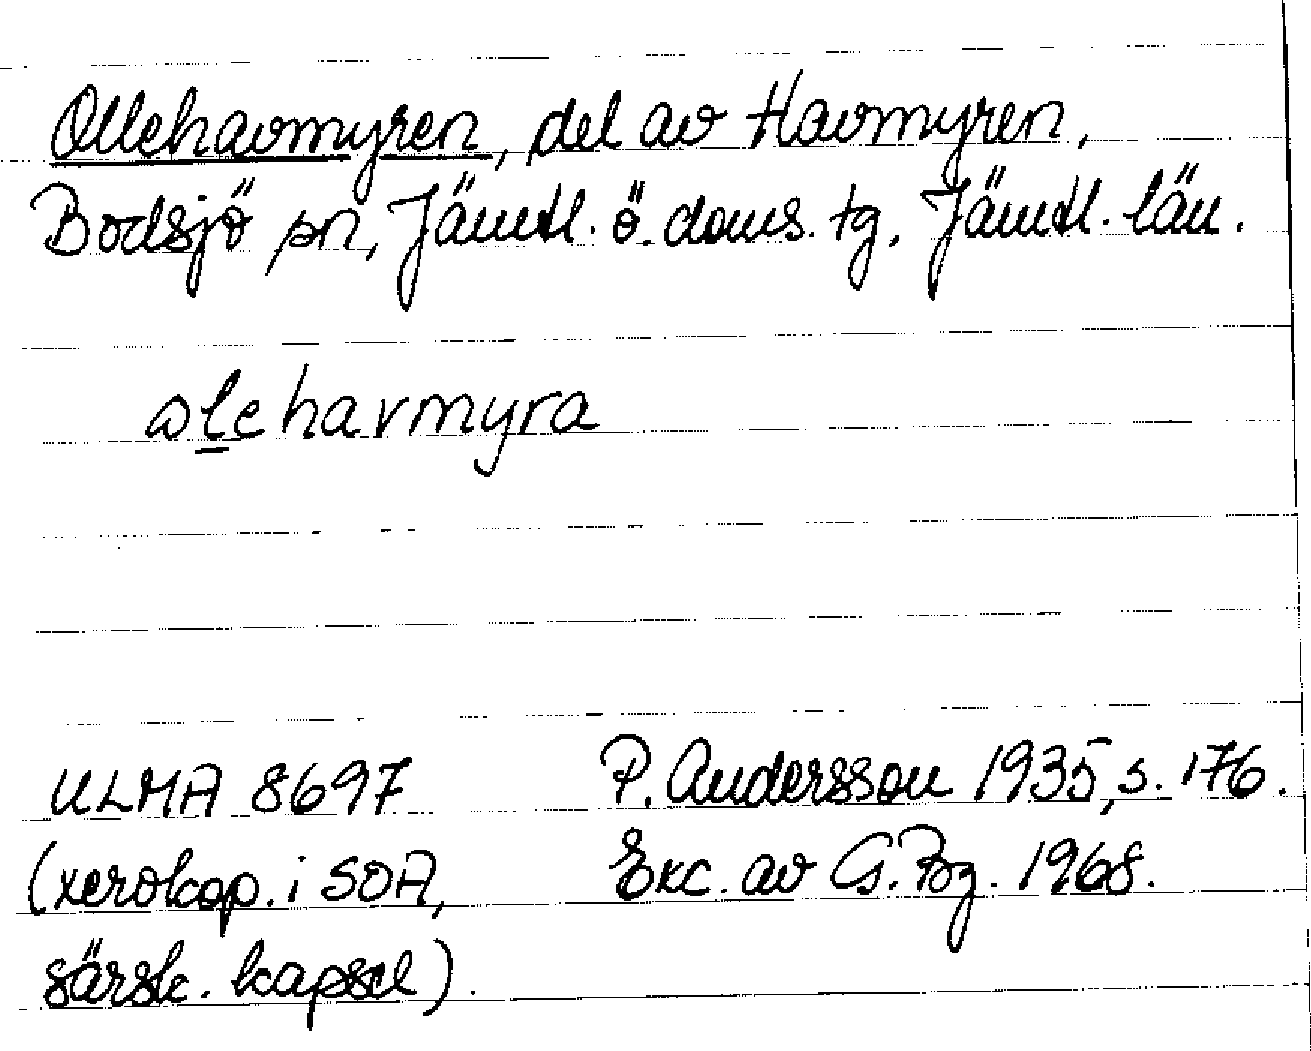 Ollehavmyren, del av Havmyren,
Bodsjö sn, Jämtl. ö. doms. tg, Jämtl. län.
olehavmyra
ULMA 8697
(xerokop. i SOA,
särsk. kapsel).
P. Andersson 1935, s. 176.
Exc. av G. Bg. 1968.